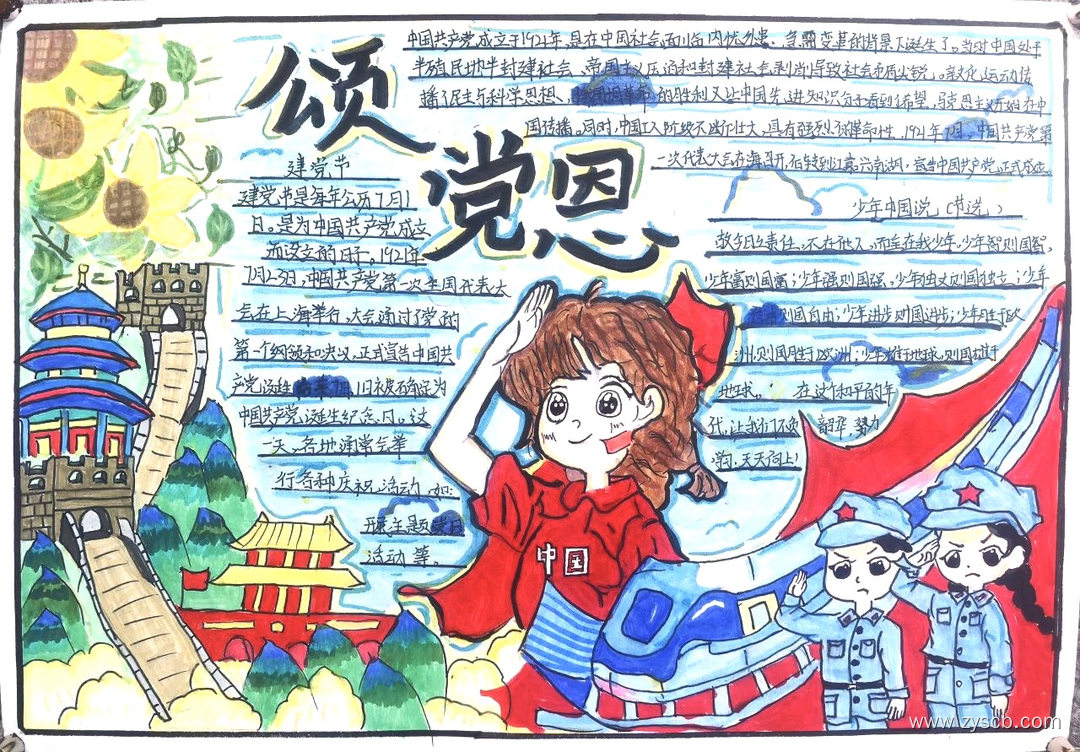 颂
党恩
中国共产党成立于1921年,是在中国社会面临内忧外患、急需变革的背景下诞生了。当时中国处于
半殖民地半封建社会、帝国主义压迫和封建社会剥削导致社会矛盾尖锐。新文化运动传
播了民主与科学思想、的胜利又让中国先进知识分子看到希望,马克思主义开始在中
国传播。同时,中国工人阶级不断壮大,具有强烈的革命性。1921年7月,中国共产党第
一次代表大会在上海召开,后转到嘉兴南湖,宣告中国共产党正式成立。
建党节
建党节是每年公历7月1
日。是为中国共产党成立
而设立的日子,1921年
7月23日,中国共产党第一次全国代表大
会在上海举行,大会通过了党的
第一个纲领和决议,正式宣告中国共
产党诞生,7月1日被确定为
中国共产党诞生纪念日。这
一天,各地通常会举
行各种庆祝活动,如:
开展主题党日
活动等。
少年中国说(节选)
故今日之责任,不在他人,而全在我少年。少年智则国智,
少年富则国富;少年强则国强,少年独立则国独立;少年
自由则国自由;少年进步则国进步;少年胜于欧
洲,则国胜于欧洲;少年雄于地球,则国雄于
地球。 在这个和平的年
代,让我们不负韶华,努力
学习,天天向上!
中国
www.zyscb.com